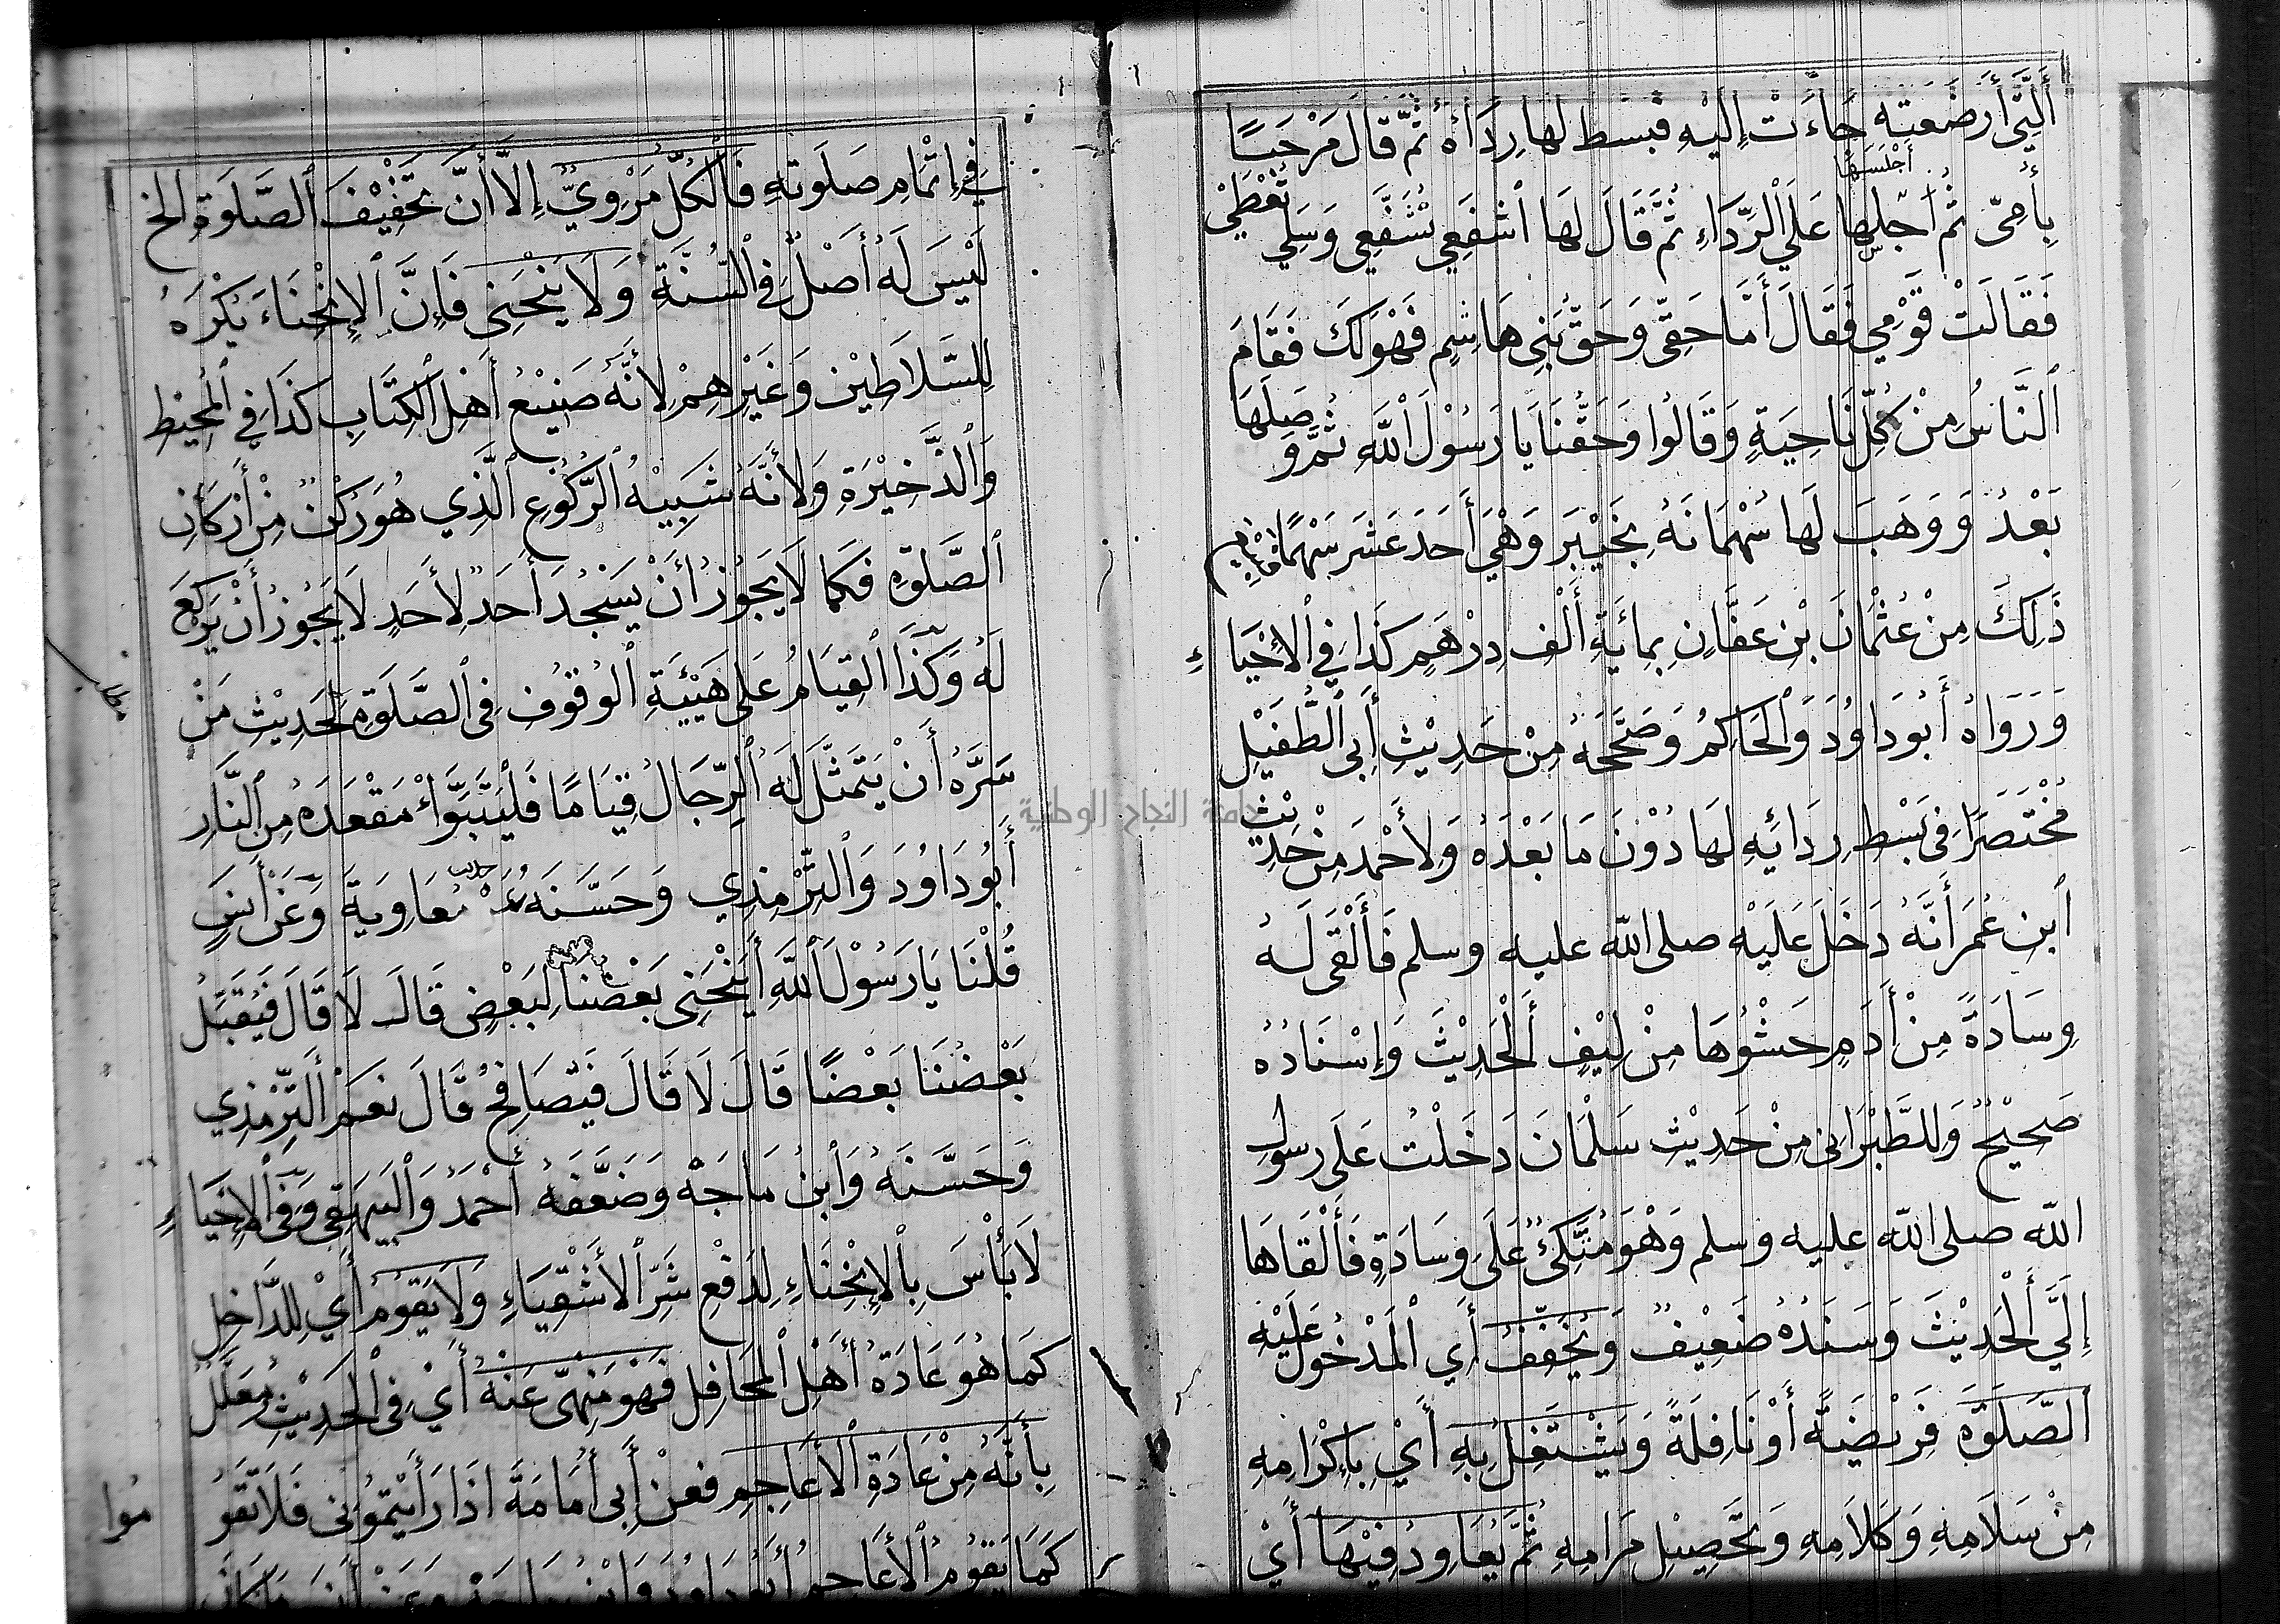 اَلَّتِي أَرْضَعَتْه جَاءَتْ إِلَيْهِ فَبَسَطَ لها رِدَاءَهُ ثُمَّ قَالَ مَرْحَبًا
أَجْلَسَهَا
بِأُمِّي ثُم أجلسها عَلَى اَلرِّدَاءِ ثُمَّ قَالَ لَها اشْفَعِي تُشَفَّعِي وَسَلِي تُعْطَيْ
فَقَالَتْ قَوْمِي فَقَالَ أَمَّا حَقِّي وَحَقُّ بَنِي هَاشِمٍ فَهْوَ لَكِ فَقَامَ
اَلنَّاسُ مِنْ كُلِّ نَاحِيَةٍ وَقَالُوا وَحَقُّنَا يَا رَسُوْلَ اَللّهِ ثُمَّ وَصَلَهَا
بَعْدُ وَوَهَبَ لَها سُهْمَانَهُ بِخَيْبَر وَهْيَ أَحَدَ عَشَر سَهْمًا
ذَلِكَ مِنْ عُثْمَانَ بْنِ عَفَّانِ بِمائَةِ أَلْفِ دِرْهَمٍ كَذَا فِي الْإِحْيَاءِ
وَرَوَاهُ أَبُو دَاوُدَ وَالْحَاكِمُ وَصَحَّحَهُ مِنْ حَدِيْثِ أَبِي الطُّفَيْلِ
مُخْتَصَرًا فِي بَسْطِ رِدَائِهِ لَهَا دُوْنَ مَا بَعْدَهُ وَلِأَحْمَدَ مِنْ حَدِيْثِ
ابنِ عُمَرَ أَنَّهُ دَخَلَ عَلَيْهِ صلى الله عليه وسلم فَأَلْقَى لَهُ
وِسَادَةً مِنْ أَدَمٍ حَشْوُهَا مِنْ لِيْفٍ اَلْحَدِيْثَ وَإِسْنَادُهُ
صَحِيْحٌ وَلِلطَّبْرَانِي مِنْ حَدِيْثِ سَلْمَانَ دَخَلْتُ عَلَى رسولِ
الله صلى الله عليه وسلم وَهْوَ مُتَّكِئٌ عَلَى وِسَادَةٍ فَأَلْقَاهَا
إِلَيَّ اَلْحَدِيْثَ وَسَنَدُهُ ضَعِيْفٌ وَيُخَفِّفُ أَي الْمَدْخُوْلُ عَلَيْهِ
الصَّلَوةَ فَرِيْضَةً أَوْ نَافِلَةً وَيَشْتَغِلُ بِهِ أَيْ بِإِكْرَامِهِ
مِنْ سَلَامِهِ وَكَلَامِهِ وَتَحْصِيْلِ مَرَامِهِ ثُمَّ يُعَاوِدُ فِيْهَا أَيْ
فِي إِتْمَامِ صَلَوتِهِ فَالْكُلُّ مَرْوِيٌّ إِلَّا أَنَّ تَخْفِيْفَ الصَّلَوةِ الخ
لَيْسَ لَهُ أَصْلٌ فِي السُّنَّةِ وَلَا يَنْحَنِي فَإِنَّ الْإِنْحِنَاءَ يُكْرَهُ
لِلسَّلاَطِيْنِ وَغَيْرِهِمْ لِأَنَّهُ صَنِيْعُ أَهْلِ الْكِتَابِ كَذَا فِي الْمُحِيْطِ
وَالذَّخِيْرَةِ وَلِأَنَّهُ شَبِيْهُ الرُّكُوْعِ الَّذِي هُوَ رُكْنٌ مِنْ أَرْكَانِ
الصَّلَوةِ فكَمَا لَا يَجُوْزُ أَنْ يَسْجُدَ أَحَدٌ لِأَحَدٍ لَا يَجُوْزُ أَنْ يَرْكَعَ
لَهُ وَكَذَا الْقِيَامُ عَلَى هَيْئَةِ الْوُقُوْفِ فِي الصَّلَوةِ لِحَدِيْثِ مَنْ
سَرَّهُ أَنْ يَتَمَثَّلَ لَهُ الرِّجَالُ قِيَامًا فَلْيَتَبَوَّأْ مَقْعَدَهُ مِنَ النَّارِ
أَبُو دَاوُدَ وَالتِّرْمِذِي وَحَسَّنَهُ مُعَاوِيَةَ وَعَنْ أَنَسٍ
قُلْنَا يَا رَسُوْلَ اللّهِ أَيَنْحَنِي بَعْضُنا لِبَعْضٍ قَالَ لَا قَالَ فَيُقَبِّلُ
بَعْضُنَا بَعْضًا قَالَ لَا قَالَ فَيُصَافِحُ قَالَ نَعَمْ اَلتِّرْمِذِي
وَحَسَّنَهُ وَابْنُ مَاجَهْ وَضَعَّفَهُ أَحْمَدُ وَالْبَيْهَقِي وَفِي الْإِحْيَاءِ
لَا بَأْسَ بِالْإِنْحِنَاءِ لِدَفْعِ شَرِّ الْأَشْقِيَاءِ وَلَا يَقُوْمُ أَيْ لِلدَّاخِلِ
كَمَا هُوَ عَادَةُ أَهْلِ الْمَحَافِلِ فَهْوَ مَنْهِيٌّ عَنْهُ أَيْ فِي الْحَدِيْثِ مُعَلَّلٌ
بِأَنَّهُ مِنْ عَادَةِ الْأَعَاجِمِ فعَنْ أَبِي أُمَامَةَ اذَا رَأَيْتُمُوْنِي فَلَا تَقُوْ
مُوا
كَمَا يَقُوْمُ الْأَعَاجِمُ أَبُو دَاوُدَ وَابْنُ مَاجَهْ وَعَنْ أَنَسٍ مَا كَانَ
جامعة النجاح الوطنية